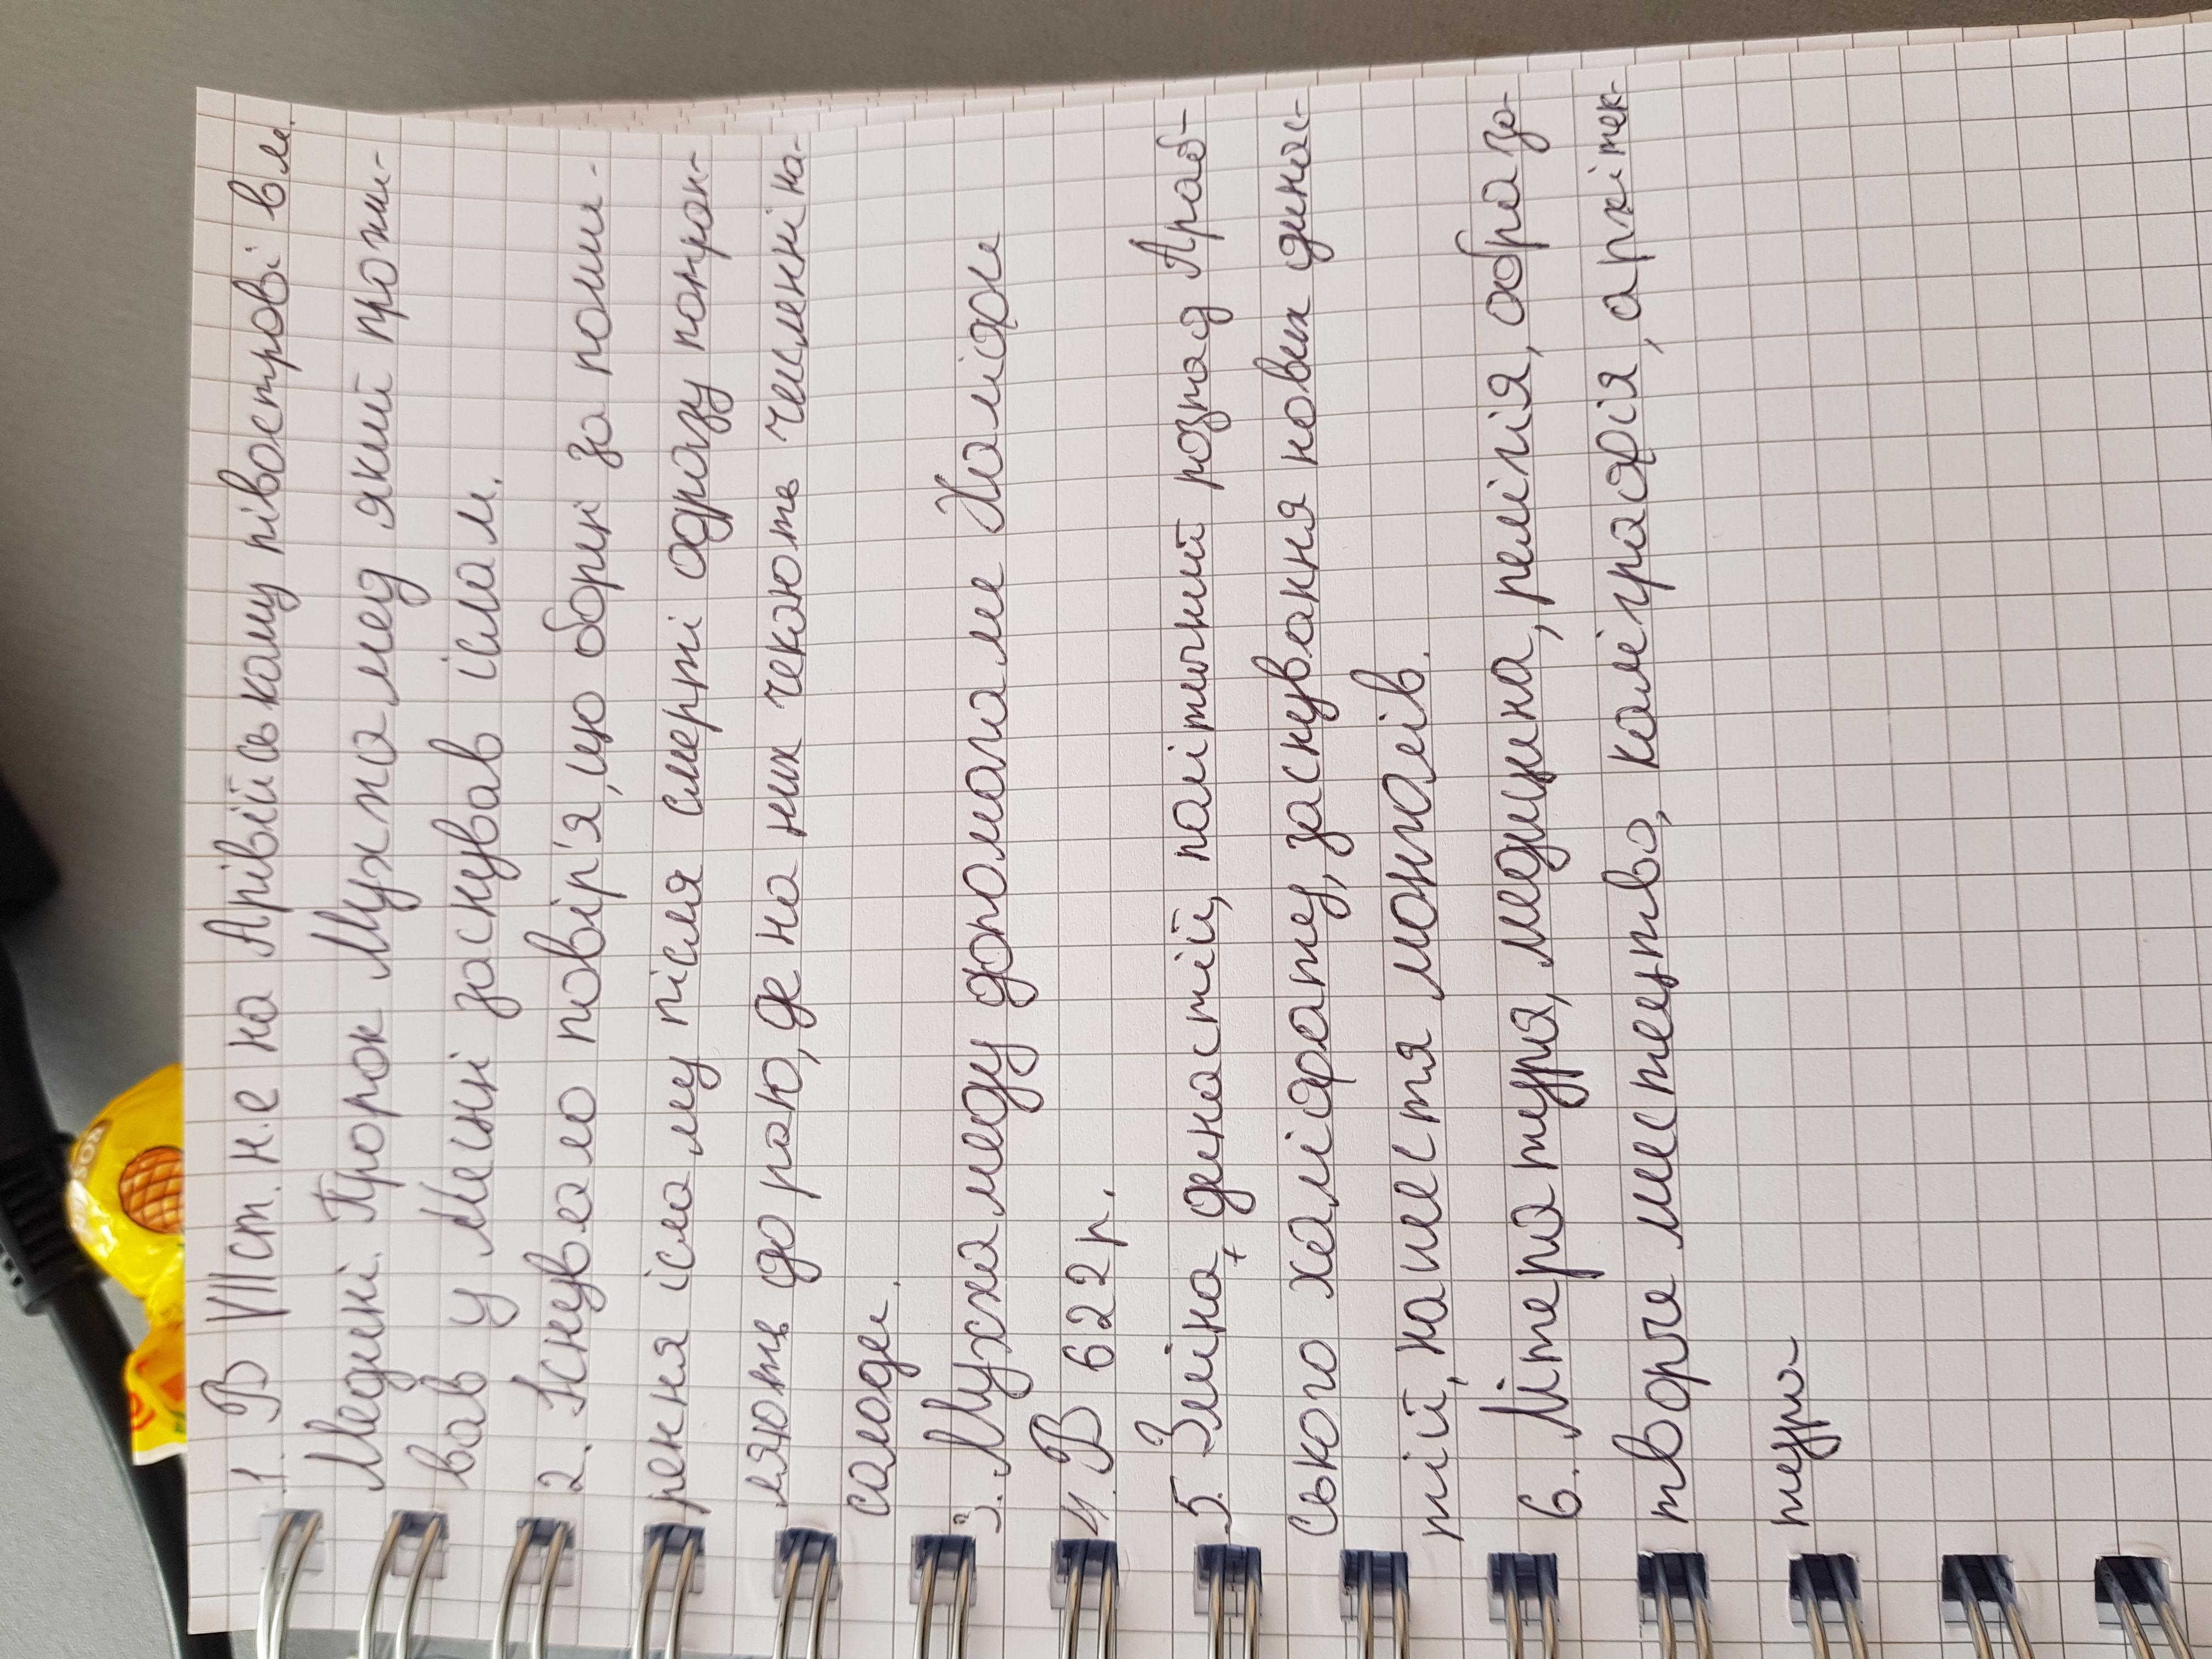 1. В VII ст. н.е на Арівійському півострові в м.
Медині. Пророк Мухамед який прожи-
вав у Мекці заснував іслам.
2. Існувало повір'я, що борці за поши-
рення ісламу після смерті одразу потрап-
ляють до раю, де на них чекають численні на-
солоди.
3. Мухамеду допомагали Халіфи
4. В 622 р.
5. Зміна династій, політичний розпад Араб-
ського халіфату, заснування нових динас-
тій, нашестя монголів.
6. Література, медицина, релігія, образо-
творче мистецтво, каліграфія, архітек-
тура